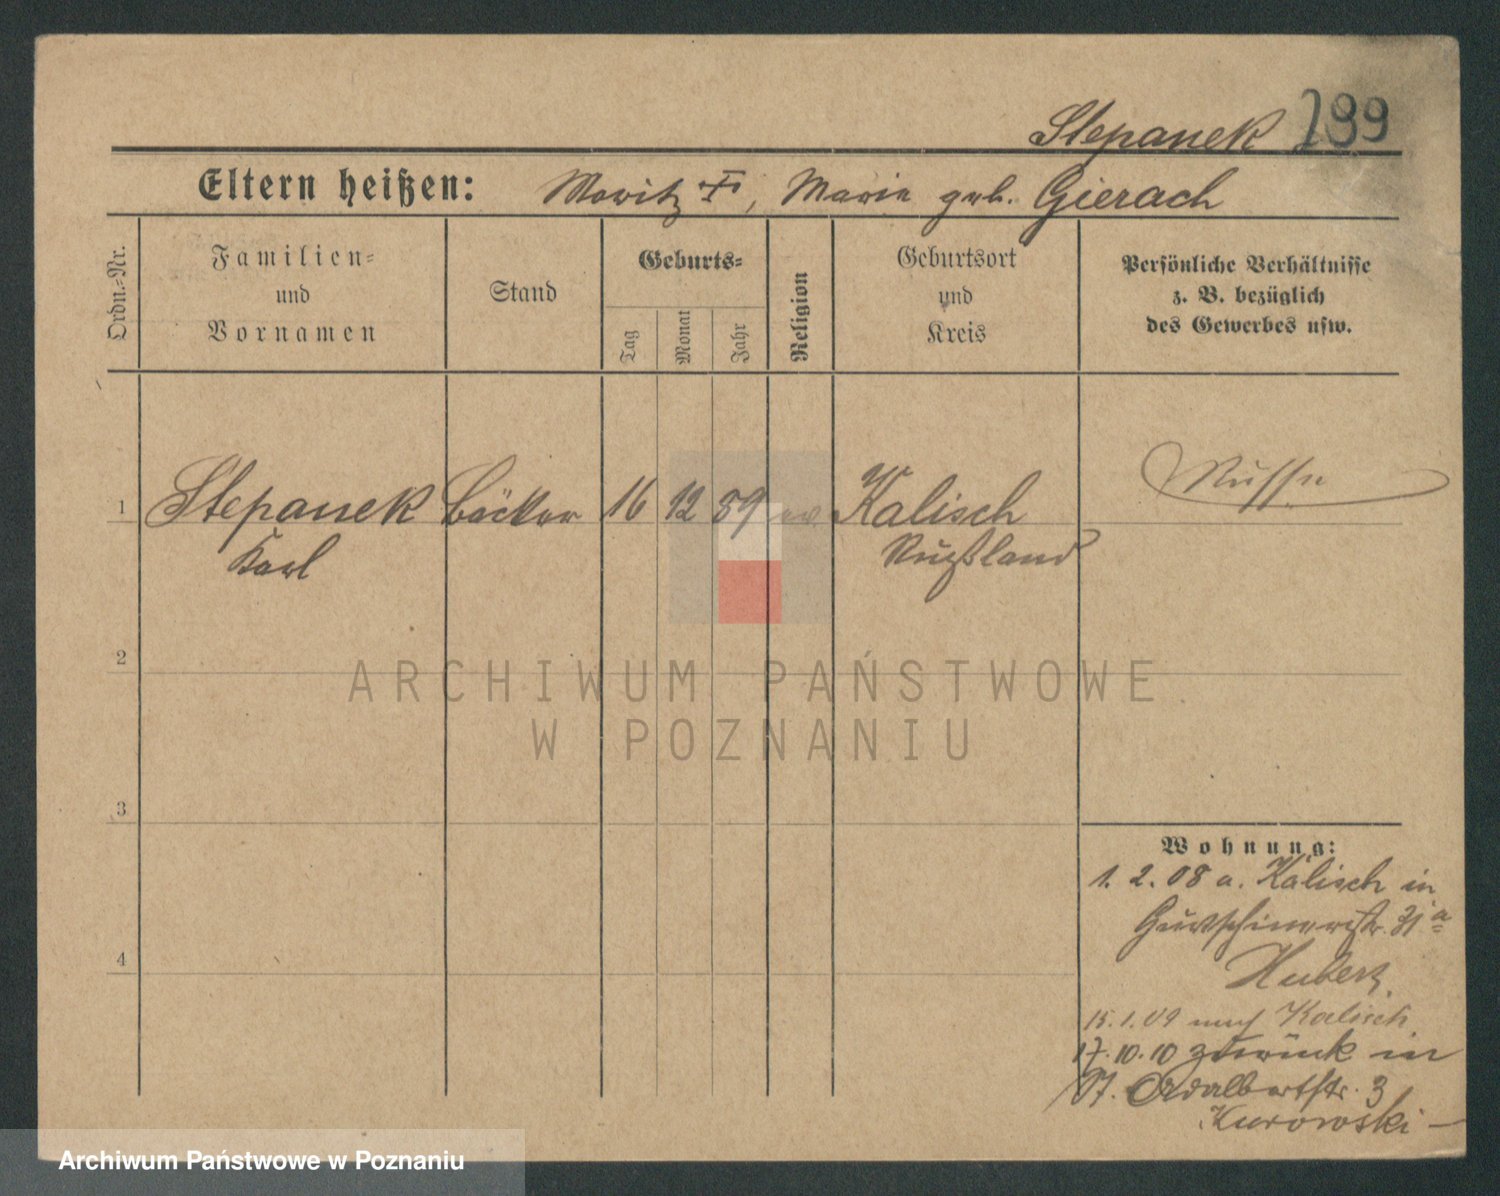 Stepanek 199
Eltern heißen: Moritz †, Maria geb. Gierach
Ordn.-Nr.
Familien-
und
Vornamen
Stand
Geburts-
Tag
Monat
Jahr
Religion
Geburtsort
und
Kreis
Persönliche Verhältnisse
z. B. bezüglich
des Gewerbes usw.
1 Stepanek Bäcker 16 12 89 ev Kalisch Russe
Karl Rußland
2
3
4
Wohnung:
1. 2. 08 a. Kalisch in
31 a
15. 1. 09 nach Kalisch
17. 10. 10 zurück in
St. Adalbertstr. 3
Kurowski
ARCHIWUM PAŃSTWOWE
W POZNANIU
Archiwum Państwowe w Poznaniu